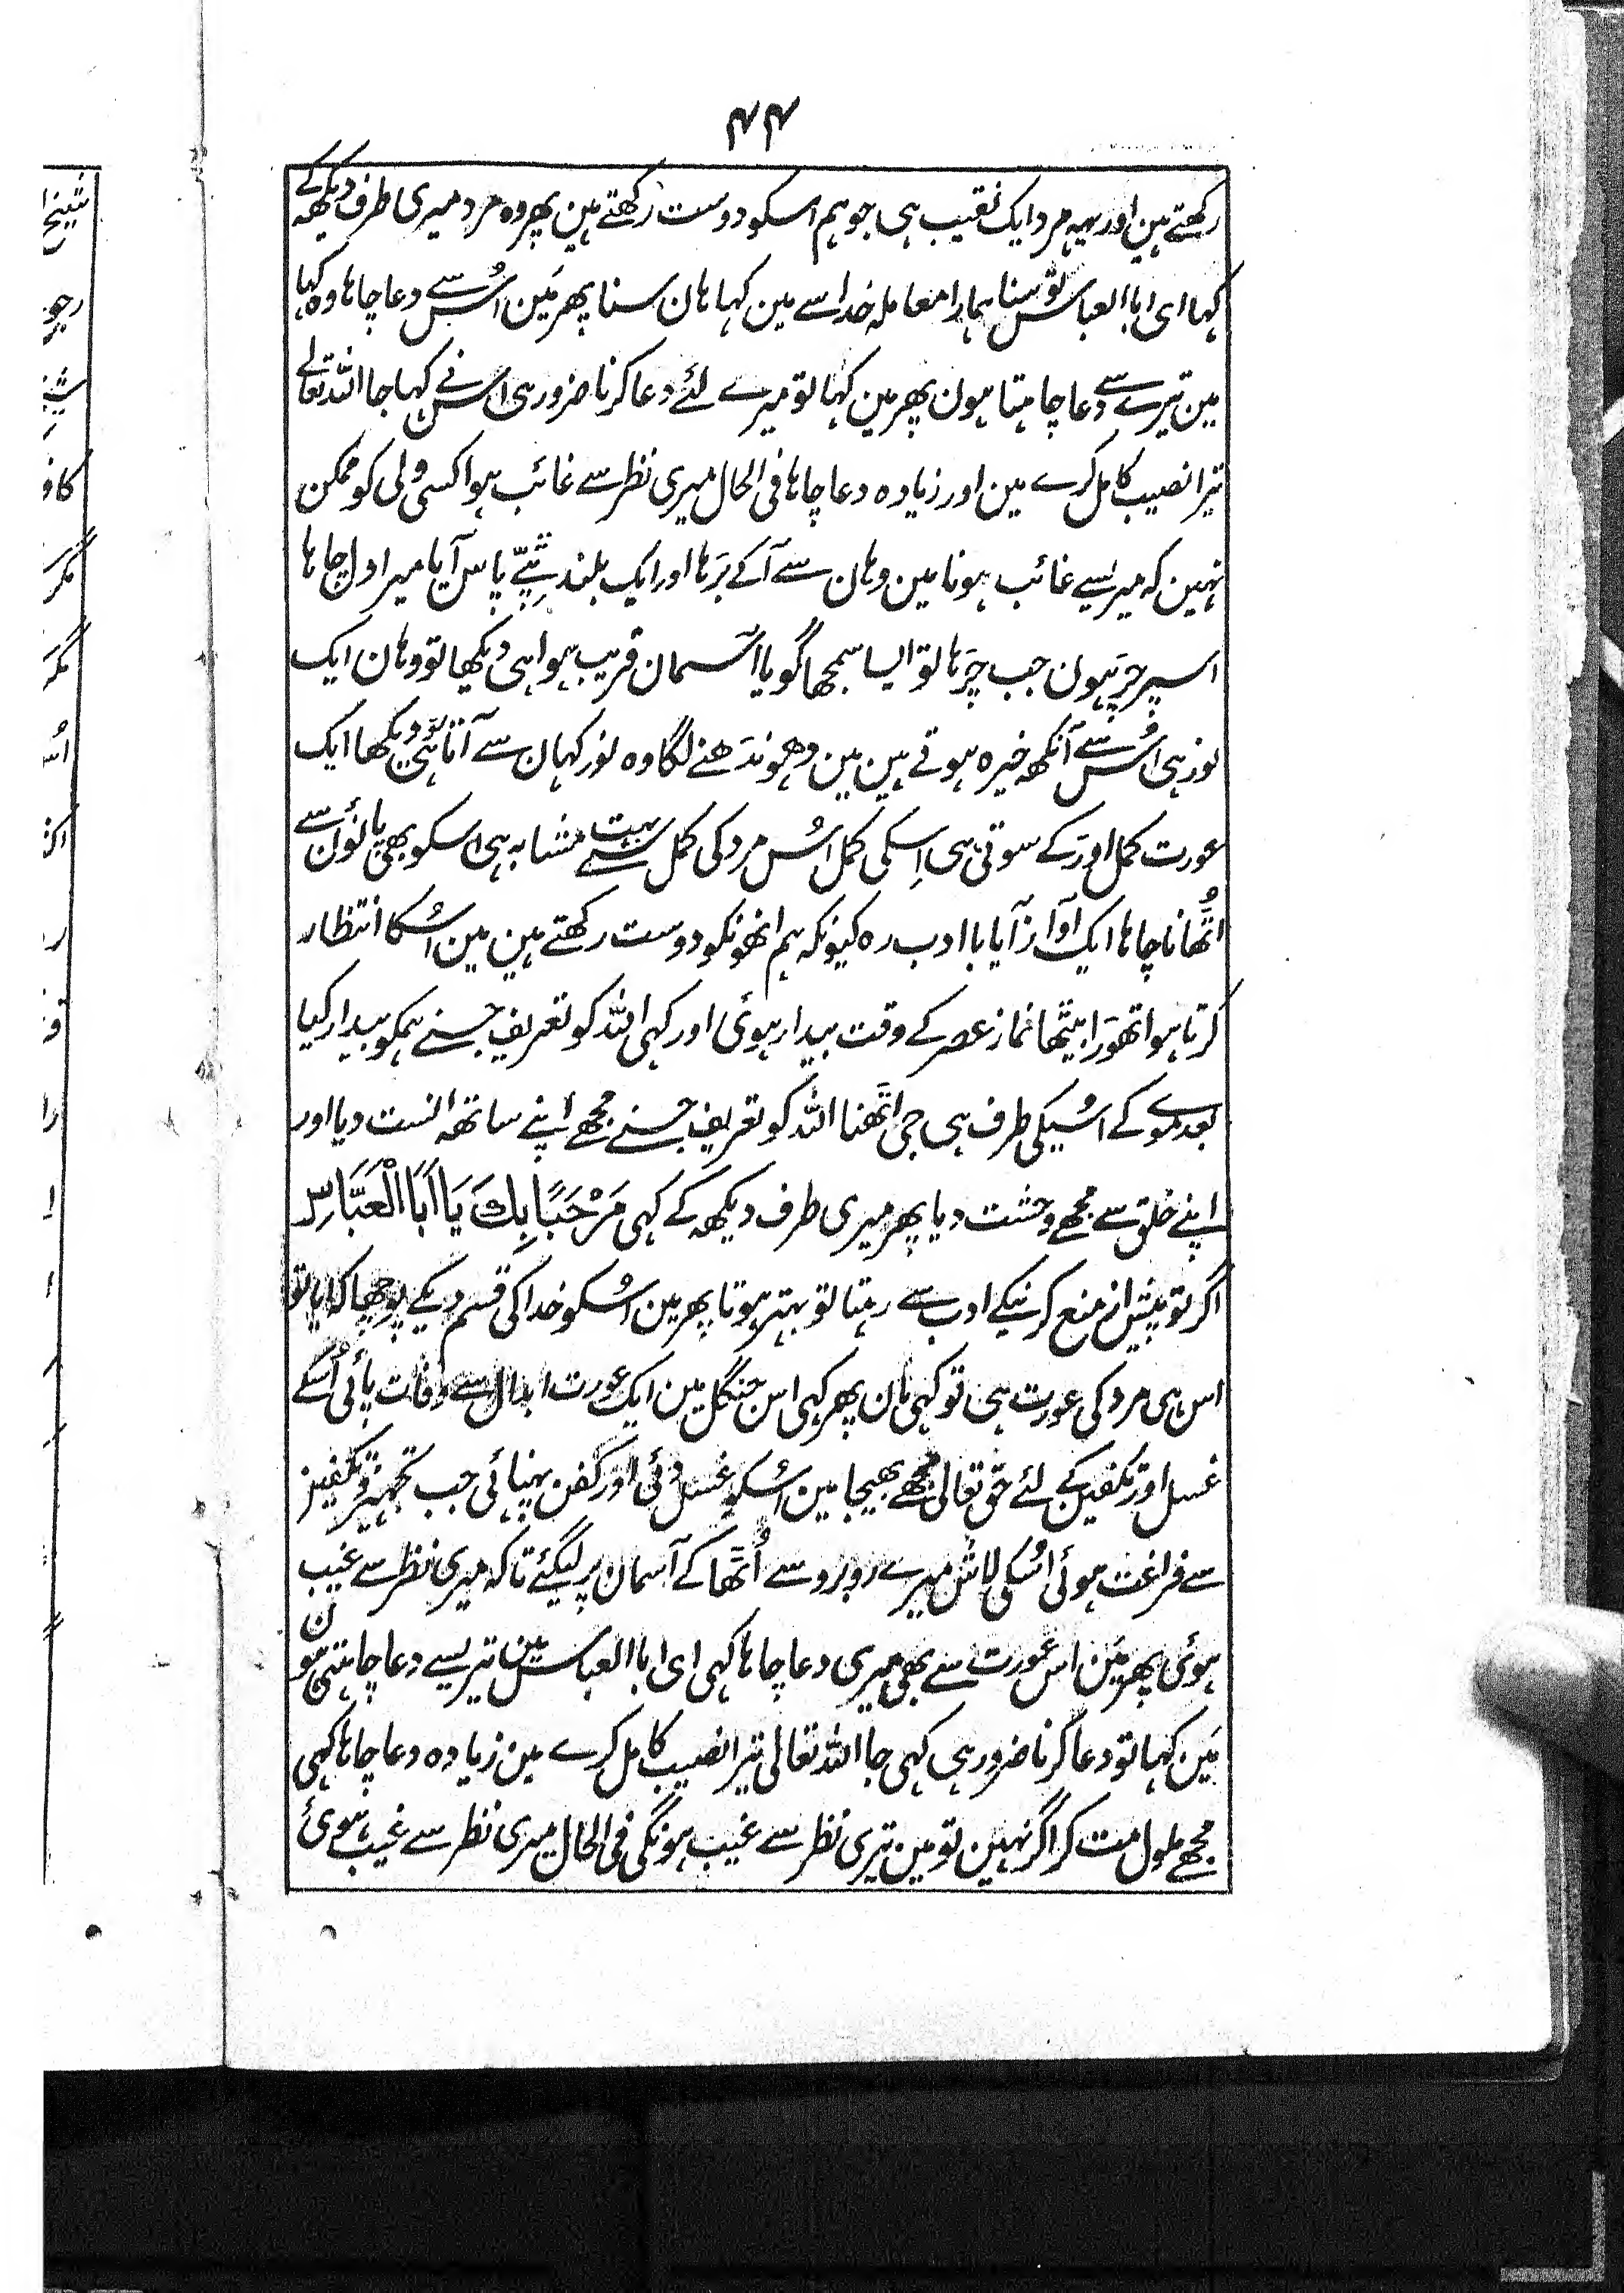 ۴۴
رکھتے ہین اور یہہ مرد ایک نقیب ہی جو ہم اسکو دوست رکھتے ہین پھر وہ مرد میری طرف دیکھہ کے
کہا ای ابا العباس تو سنا ہمارا معاملہ خدا سے مین کہا ہان سنا پھر مَین اُس سے دعا چاہا وہ کہا
مین تیرے سے دعا چاہتا ہون پھر مین کہا تو میرے لئے دعا کرنا ضرور ہی اس نے کہا جا اللہ تعالے
تیرا نصیب کامل کرے مین اور زیادہ دعا چاہا فی الحال میری نظر سے غائب ہوا کسی ولی کو ممکن
نہین کہ میرسے غائب ہونا مین وہان سے آکے بَرہا اور ایک بلند ٹِپّے پاس آیا میرا دل چاہا
اسپر چَرہون جب چَرہا تو ایسا سمجھا گویا آسمان قریب ہوا ہی دیکھا تو وہان ایک
نور ہی اُس سے آنکھہ خیرہ ہوتے ہین مین دھوندھنے لگا وہ نور کہان سے آتا ہی دیکھا ایک
عورت کمل اور کے سوتی ہی اِسکی کمل اُس مرد کی کمل سے بہت مشابہ ہی اسکو بھی پانؤن سے
اُٹھانا چاہا ایک آواز آیا با ادب رہ کیونکہ ہم انھونکو دوست رکھتے ہین مین اُسکا انتظار
کرتا ہوا تھورا بیٹھا نماز عصر کے وقت بیدار ہوئی اور کہی اللہ کو تعریف جسنے ہمکو بیدار کیا
بعد موے کے اُسیکی طرف ہی جی اٹھنا اللہ کو تعریف جسنے مجھے اپنے ساتھہ انست دیا اور
اپنے خلق سے مجھے وحشت دیا پھر میری طرف دیکھہ کے کہی مَرْحَبًا بِكَ يَا اَبَا الْعَبَّاسِ
اگر تو پیش از منع کرنیکے ادب سے رہتا تو بہتر ہوتا پھر مین اُسکو خدا کی قسم دیکے پوچھا کہ آیا تو
اس ہی مرد کی عورت ہی تو کہی ہان پھر کہی اس جنگل مین ایک عورت ابدال سے وفات پائی اُسکے
غسل اور تکفین کے لئے حق تعالی مجھے بھیجا مین اُسکو غسل دئی اور کفن پہنائی جب تجہیز و تکفین
سے فراغت ہوئی اُسکی لاش میرے روبرو سے اُٹھا کے آسمان پر لیگئے تاکہ میری نظر سے غیب
ہوئی پھر مَین اس عورت سے بھی میری دعا چاہا کہی ای ابا العباس مین تیرسے دعا چاہتی ہون
مَین کہا تو دعا کرنا ضرور ہی کہی جا اللہ تعالی تیرا نصیب کامل کرے مین زیادہ دعا چاہا کہی
مجھے ملول مت کر اگر نہین تو مین تیری نظر سے غیب ہونگی فی الحال میری نظر سے غیب ہوئ